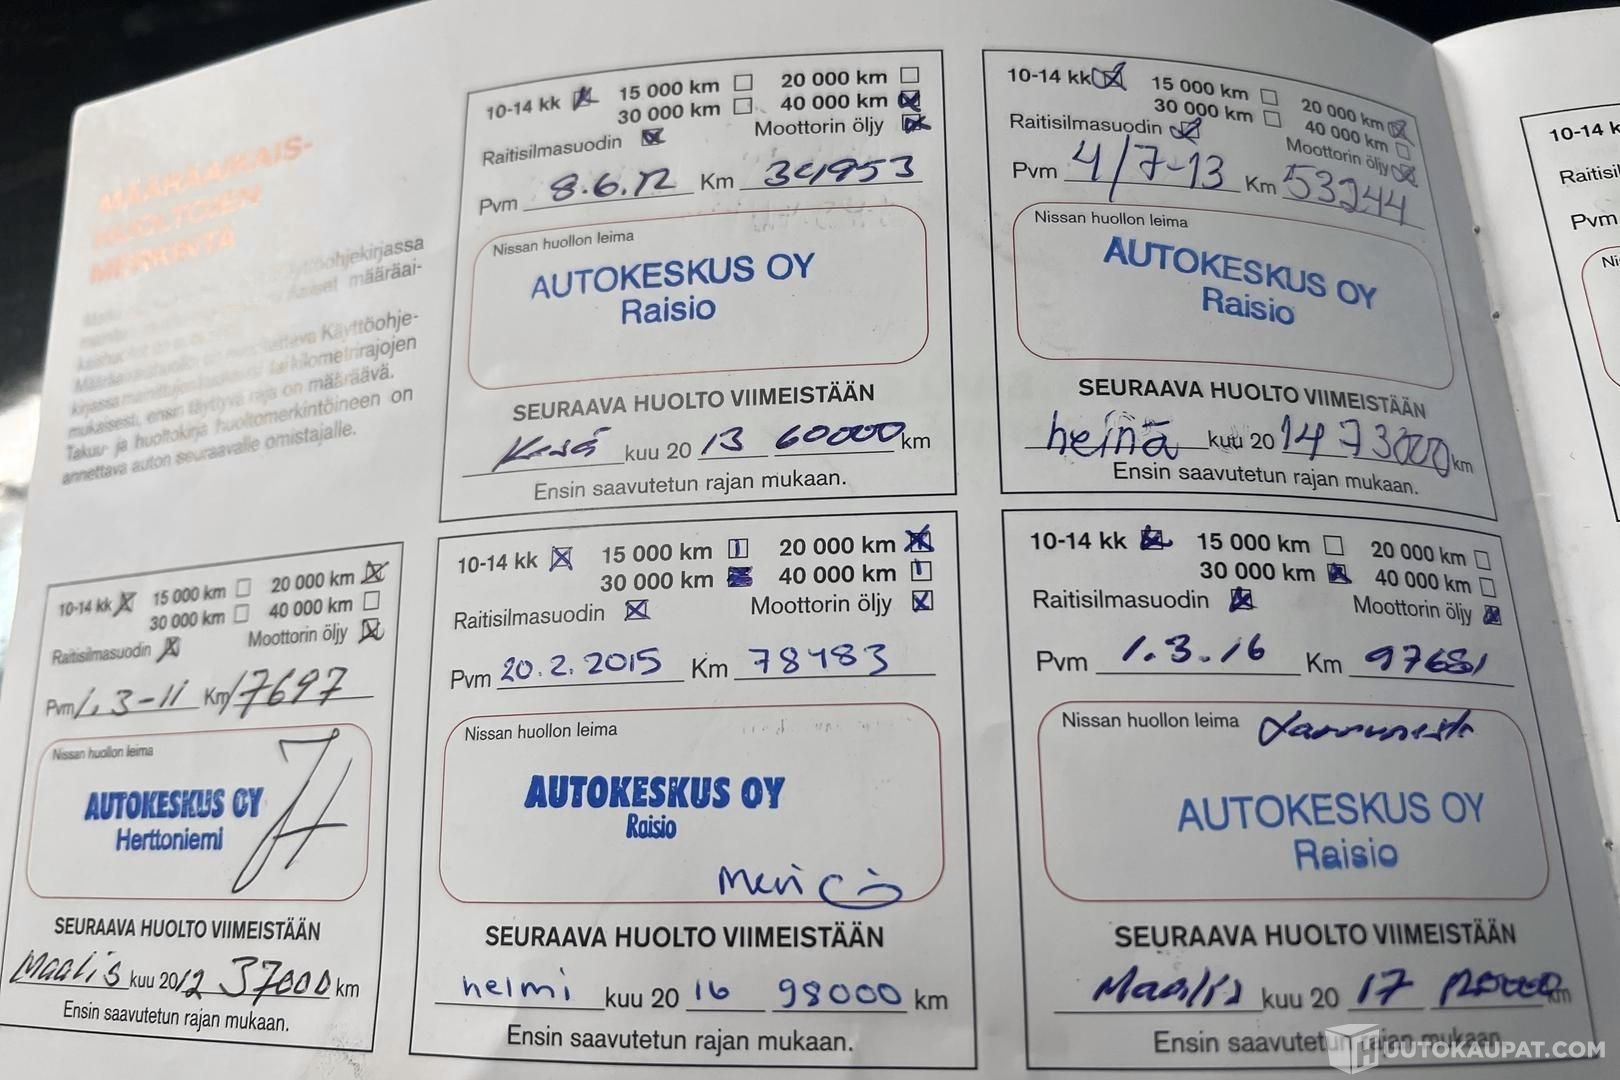 MÄÄRÄAIKAIS-
HUOLTOJEN
MERKINTÄ
Käyttöohjekirjassa
määräai-
Käyttöohje-
kirjassa mainittujen kuukausi tai kilometrirajojen
mukaisesti, ensin täyttyvä raja on määräävä.
Takuu- ja huoltokirja huoltomerkintöineen on
annettava auton seuraavalle omistajalle.
10-14 kk 15 000 km 20 000 km
30 000 km 40 000 km
Raitisilmasuodin Moottorin öljy
Pvm 1.3-11 Km 17697
Nissan huollon leima
AUTOKESKUS OY
Herttoniemi
SEURAAVA HUOLTO VIIMEISTÄÄN
Maalis kuu 2012 37000 km
Ensin saavutetun rajan mukaan.
10-14 kk 15 000 km 20 000 km
30 000 km 40 000 km
Raitisilmasuodin Moottorin öljy
Pvm 8.6.12 Km 34953
Nissan huollon leima
AUTOKESKUS OY
Raisio
SEURAAVA HUOLTO VIIMEISTÄÄN
Kesä kuu 20 13 60000 km
Ensin saavutetun rajan mukaan.
10-14 kk 15 000 km 20 000 km
30 000 km 40 000 km
Raitisilmasuodin Moottorin öljy
Pvm 4/7-13 Km 53244
Nissan huollon leima
AUTOKESKUS OY
Raisio
SEURAAVA HUOLTO VIIMEISTÄÄN
heinä kuu 20 14 73000 km
Ensin saavutetun rajan mukaan.
10-14 kk 15 000 km 20 000 km
30 000 km 40 000 km
Raitisilmasuodin Moottorin öljy
Pvm 20.2.2015 Km 78483
Nissan huollon leima
AUTOKESKUS OY
Raisio
Meri
SEURAAVA HUOLTO VIIMEISTÄÄN
helmi kuu 20 16 98000 km
Ensin saavutetun rajan mukaan.
10-14 kk 15 000 km 20 000 km
30 000 km 40 000 km
Raitisilmasuodin Moottorin öljy
Pvm 1.3.16 Km 97681
Nissan huollon leima
AUTOKESKUS OY
Raisio
SEURAAVA HUOLTO VIIMEISTÄÄN
Maalis kuu 20 17 km
Ensin saavutetun rajan mukaan.
10-14 k
Raitisil
Pvm
Ni
HUUTOKAUPAT.COM